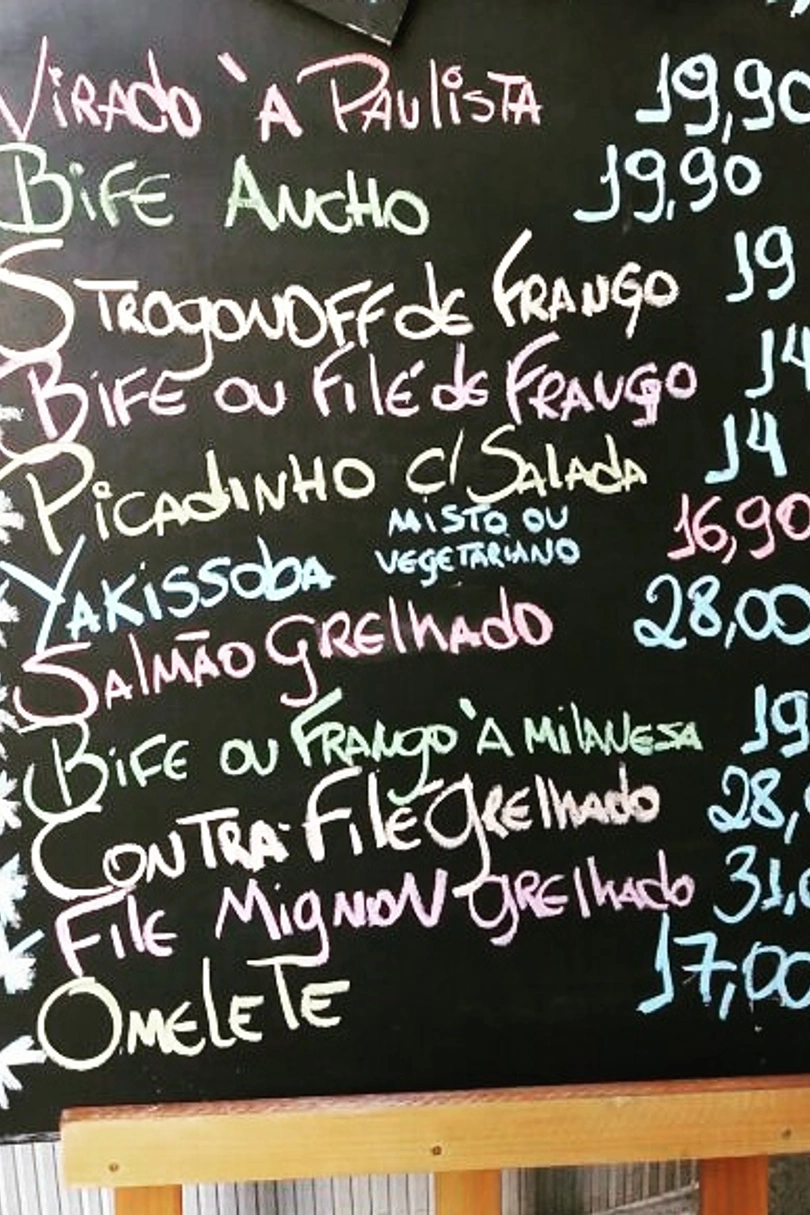 Virado `a Paulista 19,90
Bife Ancho 19,90
Strogonoff de Frango 19
Bife ou Filé de Frango 14
Picadinho c/ Salada 14
Yakissoba misto ou vegetariano 16,90
Salmão Grelhado 28,00
Bife ou Frango `a milanesa 19
Contra-Filé Grelhado 28,
File Mignon grelhado 31,
Omelete 17,00